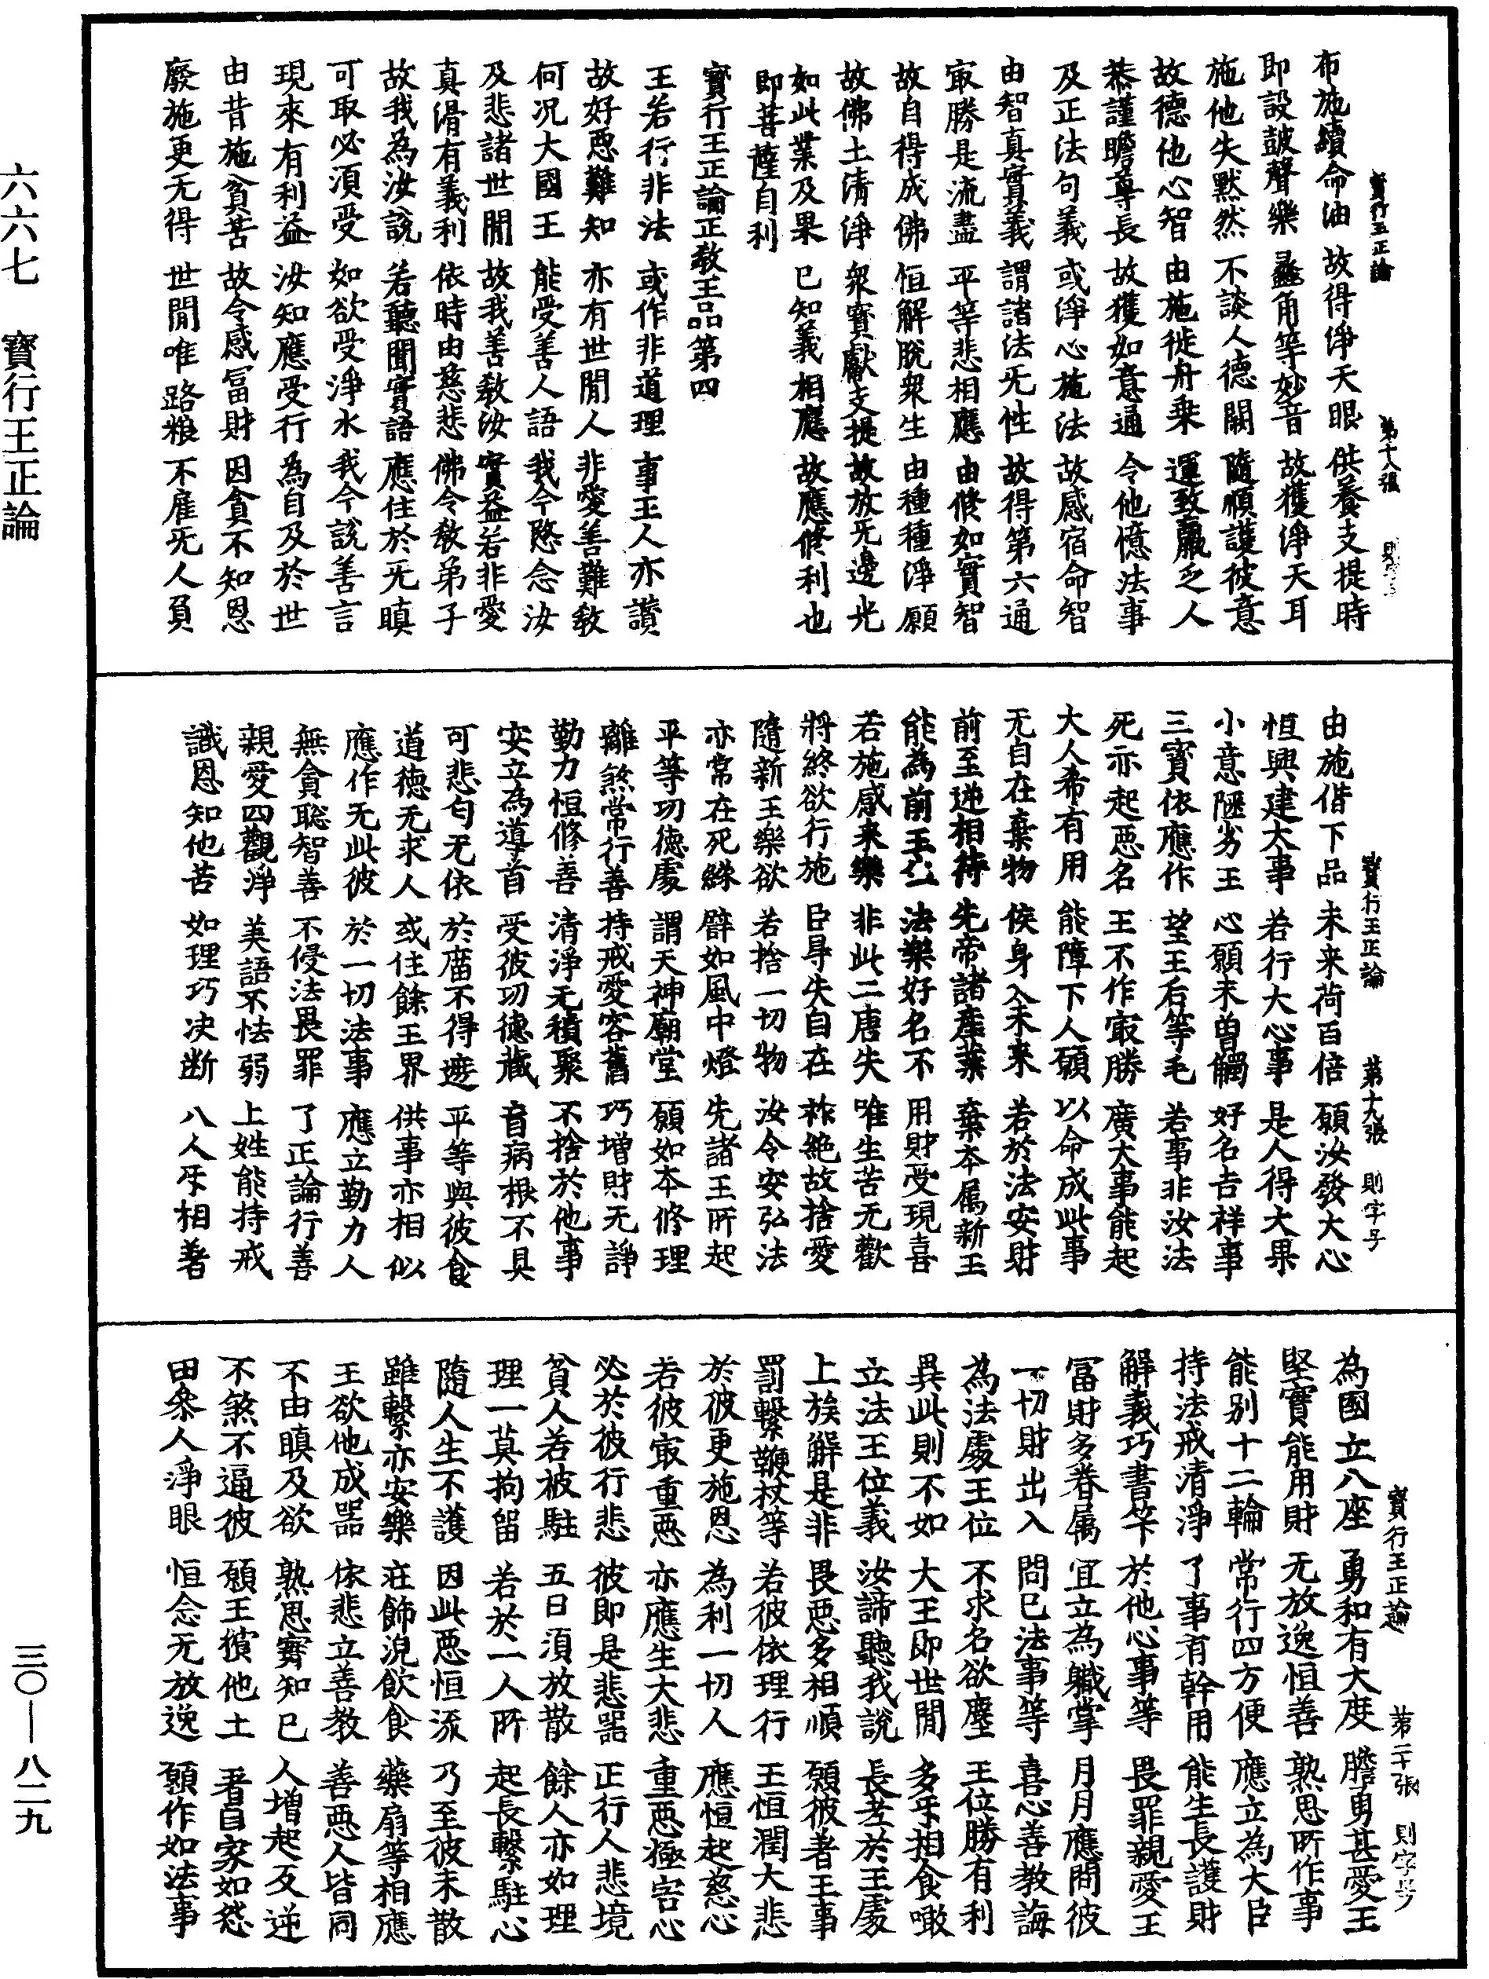 六六七　寶行王正論
三〇—八二九
寶行王正論　第十八張　則
布施續命油　故得淨天眼　供養支提時
即設鼓聲樂　蠡角等妙音　故獲淨天耳
施他失默然　不談人德闕　隨順護彼意
故德他心智　由施徙舟乗　運致羸乏人
恭謹瞻尊長　故獲如意通　令他憶法事
及正法句義　或淨心施法　故感宿命智
由智真實義　謂諸法无性　故得第六通
㝡勝是流盡　平等悲相應　由修如實智
故自得成佛　恒解脫衆生　由種種淨願
故佛土清淨　衆寶獻支提　故放无邊光
如此業及果　已知義相應　故應修利也
即菩薩自利
寶行王正論正教王品第四
王若行非法　或作非道理　事王人亦讃
故好惡難知　亦有世間人　非愛善難教
何况大國王　能受善人語　我今愍念汝
及悲諸世閒　故我善教汝　實益若非愛
真滑有義利　依時由慈悲　佛令教弟子
故我為汝說　若聽聞實語　應住於无瞋
可取必須受　如欲受淨水　我今說善言
現來有利益　汝知應受行　為自及於世
由昔施貧苦　故今感冨財　因貪不知恩
廢施更无得　世閒唯路粮　不雇无人負
寶行王正論　第十九張　則字号
由施偕下品　未来荷百倍　願汝發大心
恒興建大事　若行大心事　是人得大果
小意陋劣王　心願未曾觸　好名吉祥事
三寶依應作　望王后等毛　若事非汝法
死亦起惡名　王不作㝡勝　廣大事能起
大人希有用　能障下人願　以命成此事
无自在棄物　俟身入未来　若於法安財
前至逆相待　先帝諸產業　棄本属新王
能為前王亡　法樂好名不　用財受現喜
若施感来樂　非此二唐失　唯生苦无歡
將終欲行施　臣辱失自在　祚絶故捨愛
隨新王樂欲　若捨一切物　汝今安弘法
亦常在死緣　譬如風中燈　先諸王所起
平等功德處　謂天神廟堂　願如本修理
離煞常行善　持戒愛容舊　巧增財无諍
勤力恒修善　清淨无積聚　不捨於他事
安立為導首　受彼功德藏　盲病根不具
可悲匄无依　於廇不得遮　平等與彼食
道德无求人　或住餘王界　供事亦相似
應作无此彼　於一切法事　應立勤力人
無貪聡智善　不侵法畏罪　了正論行善
親愛四觀淨　美語不怯弱　上姓能持戒
識恩知他苦　如理巧决断　八人㸦相著
寶行王正論　第二十張　則字号
為國立八座　勇和有大度　膽勇甚愛王
堅實能用財　无放逸恒善　熟思所作事
能别十二輪　常行四方便　應立為大臣
持法戒清淨　了事有幹用　能生長護財
解義巧書筭　於他心事等　畏罪親愛王
冨財多眷属　宜立為職掌　月月應問彼
一切財出入　問已法事等　喜心善教誨
為法處王位　不求名欲塵　王位勝有利
異此則不如　大王即世閒　多㸦相食噉
立法王位義　汝諦聽我說　長老於王處
上族解是非　畏惡多相順　願彼著王事
罰繫鞭杖等　若彼依理行　王恒潤大悲
於彼更施恩　為利一切人　應恒起慈心
若彼㝡重惡　亦應生大悲　重惡極害心
必於彼行悲　彼即是悲器　正行人悲境
貧人若被駐　五日須放散　餘人亦如理
理一莫拘留　若於一人所　起長繫駐心
隨人生不護　因此惡恒流　乃至彼未散
雖繫亦安樂　莊飾況飲食　藥扇等相應
王欲他成器　依悲立善教　善惡人皆同
不由瞋及欲　熟思實知已　人增起及逆
不煞不逼彼　願王擯他土　看自家如怨
田衆人淨眼　恒念无放逸　願作如法事